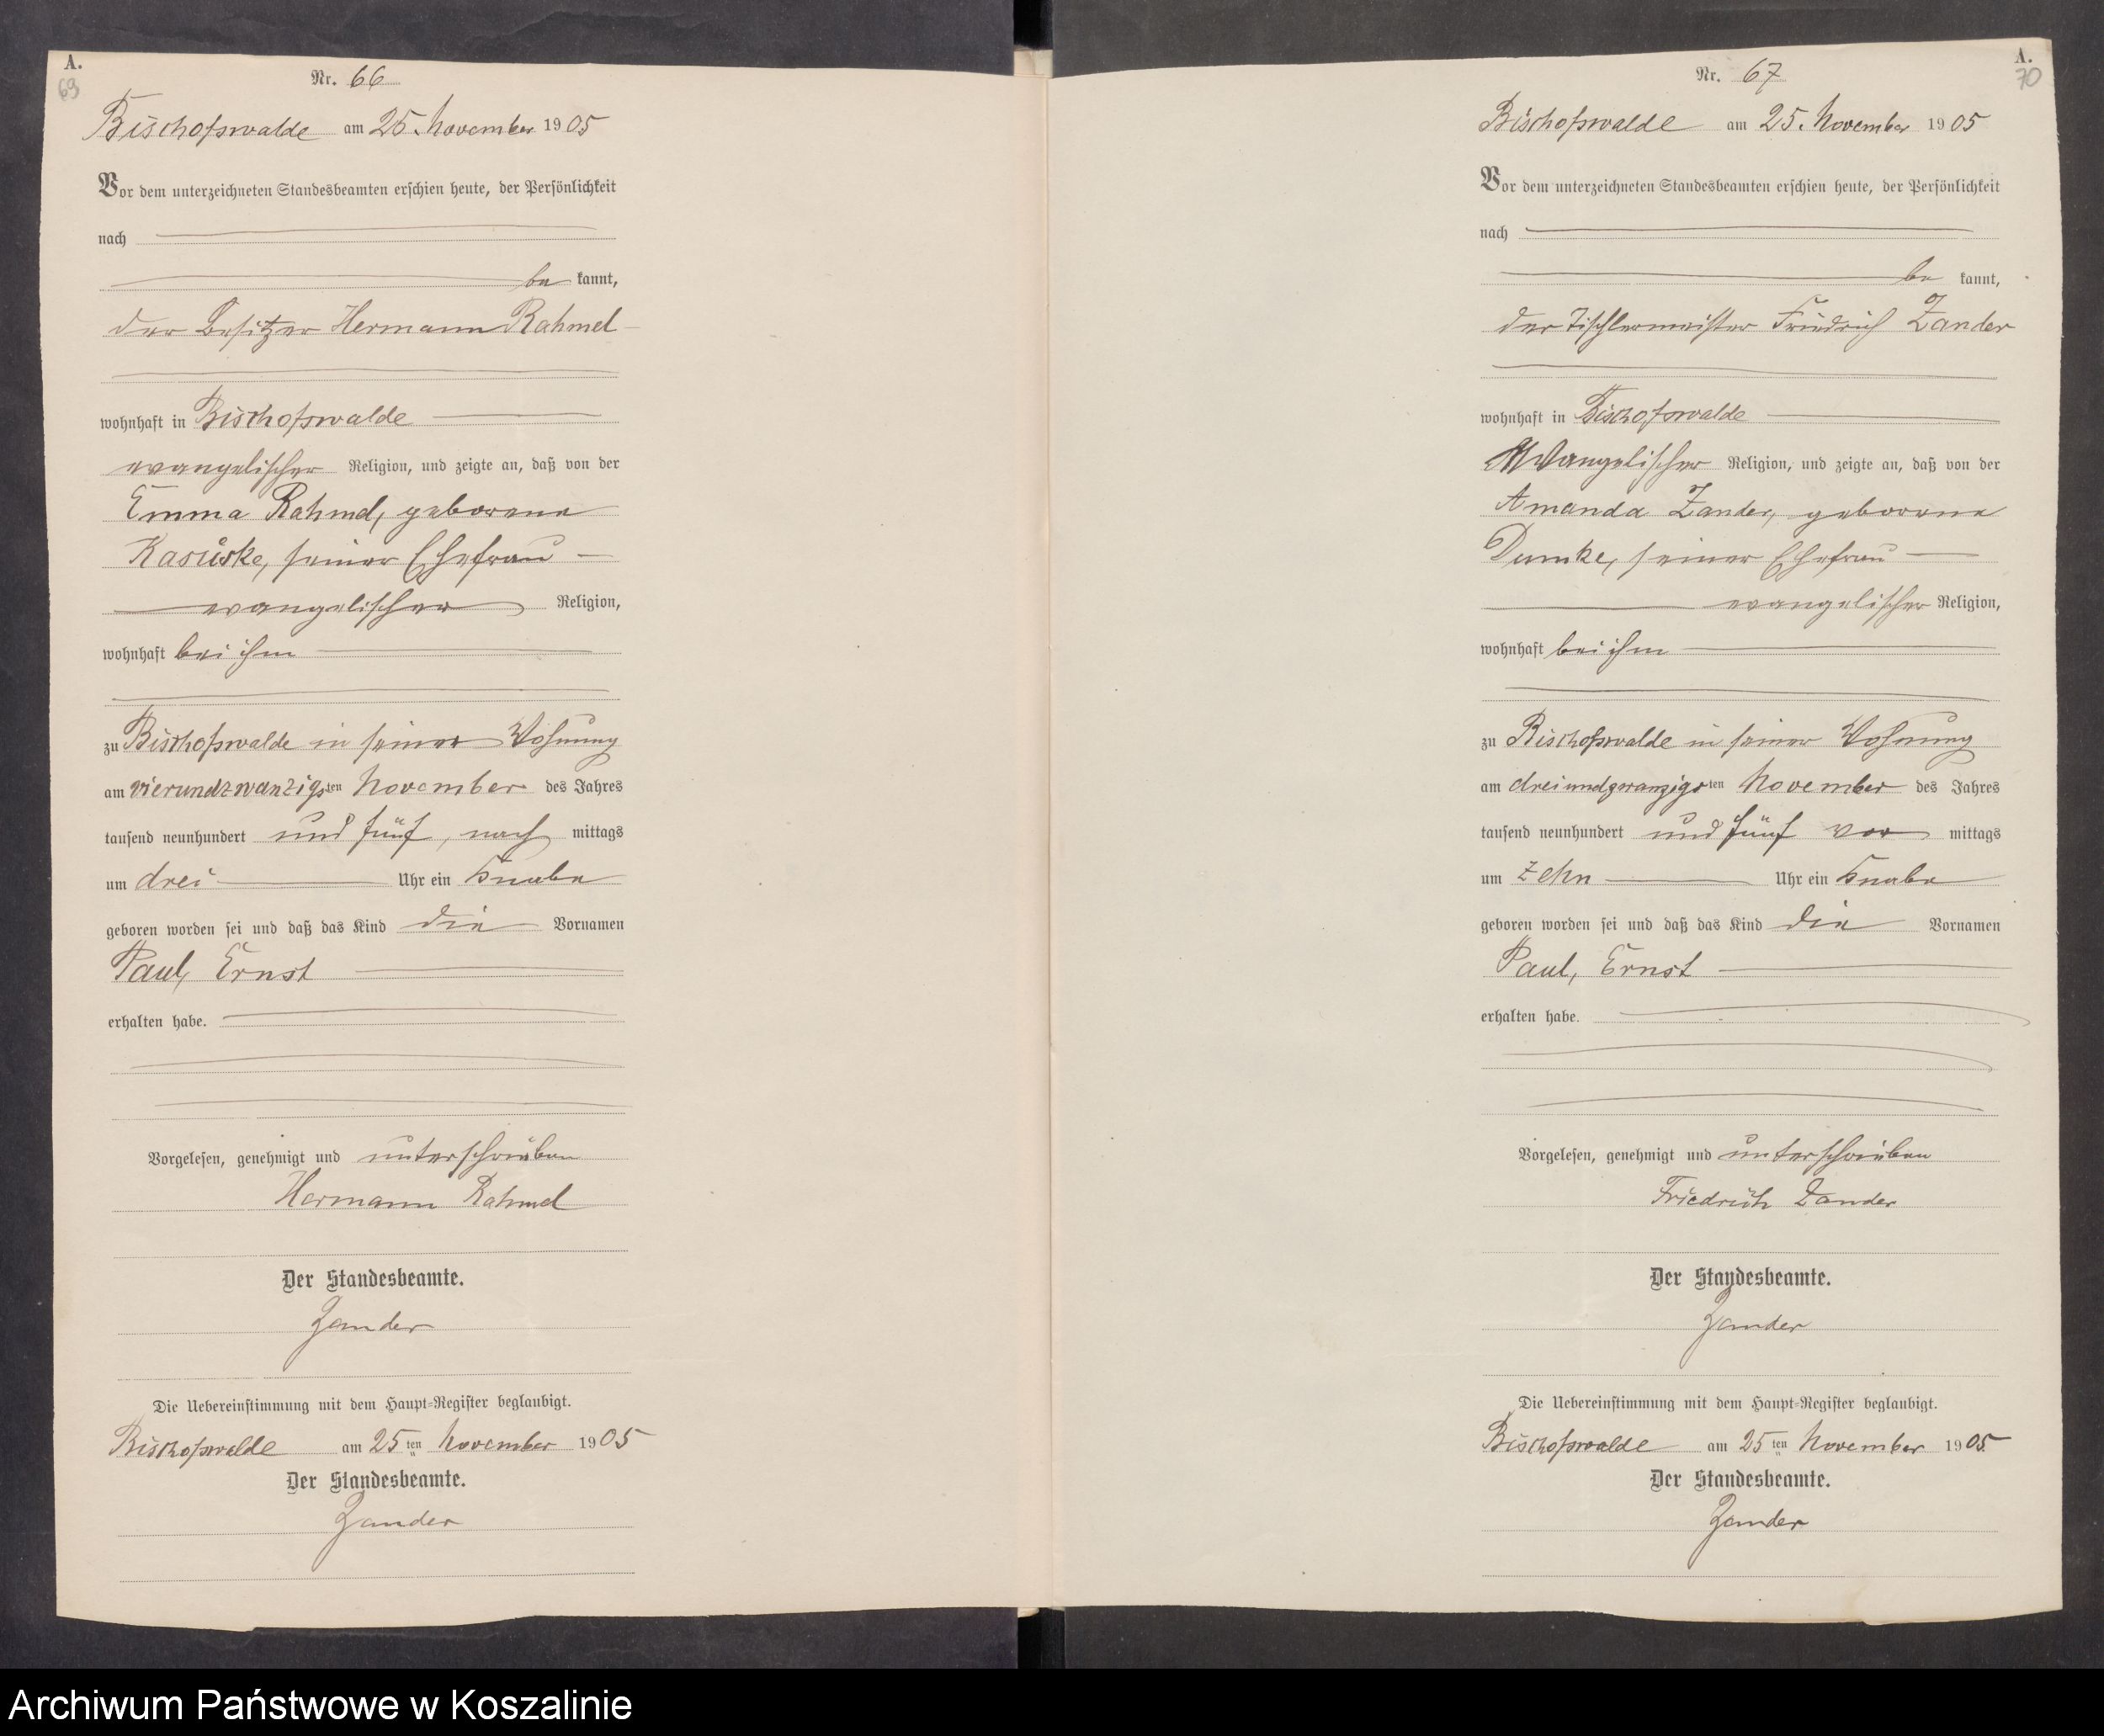 A.
69
Nr. 66
Bischofswalde am 25. November 1905
Vor dem unterzeichneten Standesbeamten erschien heute, der Persönlichkeit
nach
be kannt,
der Besitzer Hermann Rahmel
wohnhaft in Bischofswalde
evangelischer Religion, und zeigte an, daß von der
Emma Rahmel, geborene
Kasüske, seiner Ehefrau
evangelischer Religion,
wohnhaft bei ihm
zu Bischofswalde in seiner Wohnung
am vierundzwanzigsten November des Jahres
tausend neunhundert und fünf, nach mittags
um drei Uhr ein Knabe
geboren worden sei und daß das Kind die Vornamen
Paul, Ernst
erhalten habe.
Vorgelesen, genehmigt und unterschrieben
Hermann Rahmel
Der Standesbeamte.
Zander
Die Uebereinstimmung mit dem Haupt-Register beglaubigt.
Bischofswalde am 25ten November 1905
Der Standesbeamte.
Zander
A.
70
Nr. 67
Bischofswalde am 25. November 1905
Vor dem unterzeichneten Standesbeamten erschien heute, der Persönlichkeit
nach
be kannt,
der Tischlermeister Friedrich Zander
wohnhaft in Bischofswalde
evangelischer Religion, und zeigte an, daß von der
Amanda Zander, geborene
Dumke, seiner Ehefrau
evangelischer Religion,
wohnhaft bei ihm
zu Bischofswalde in seiner Wohnung
am dreiundzwanzigsten November des Jahres
tausend neunhundert und fünf vor mittags
um zehn Uhr ein Knabe
geboren worden sei und daß das Kind die Vornamen
Paul, Ernst
erhalten habe.
Vorgelesen, genehmigt und unterschrieben
Friedrich Zander
Der Standesbeamte.
Zander
Die Uebereinstimmung mit dem Haupt-Register beglaubigt.
Bischofswalde am 25ten November 1905
Der Standesbeamte.
Zander
Archiwum Państwowe w Koszalinie